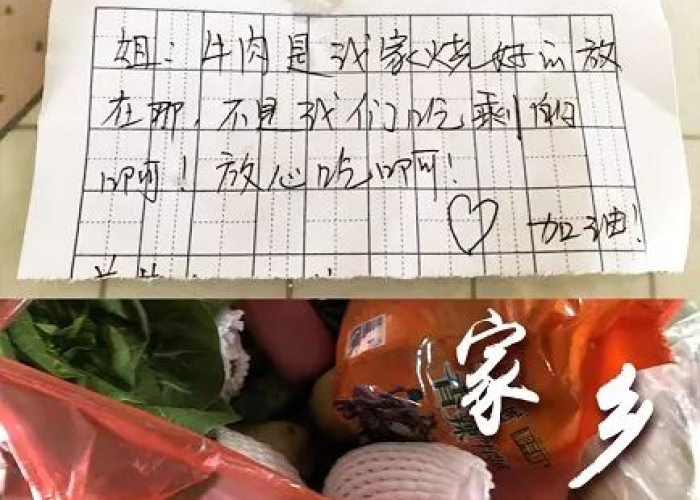 姐：牛肉是我家烧好的放
在那，不是我们吃剩的
啊！放心吃啊！
♡ 加油！
家乡